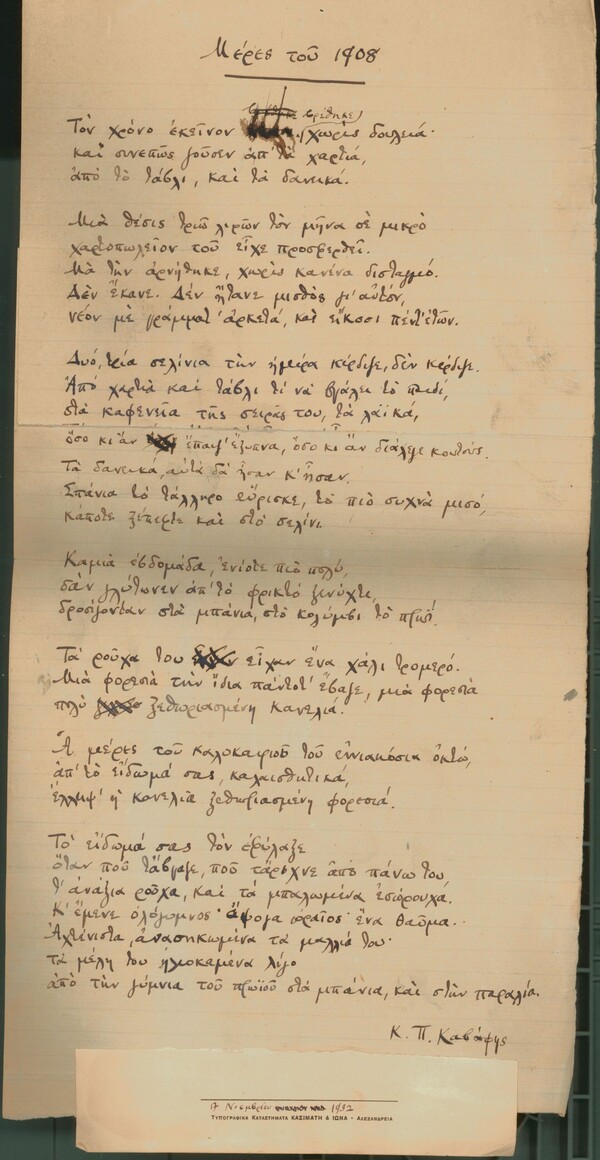 Μέρες τοῦ 1908
βρέθηκε
Τὸν χρόνο ἐκεῖνον χωρὶς δουλειά·
καὶ συνεπῶς ζοῦσεν ἀπ' τὰ χαρτιά,
ἀπὸ τὸ τάβλι, καὶ τὰ δανεικά.
Μιὰ θέσις τριῶ λιρῶν τὸν μῆνα σὲ μικρὸ
χαρτοπωλεῖον τοῦ εἶχε προσφερθεῖ.
Μὰ τὴν ἀρνήθηκε, χωρὶς κανένα δισταγμό.
Δὲν ἔκανε. Δὲν ἤτανε μισθὸς γι' αὐτόν,
νέον μὲ γράμματ' ἀρκετά, καὶ εἴκοσι πέντ' ἐτῶν.
Δυό, τρία σελίνια τὴν ἡμέρα κέρδιζε, δὲν κέρδιζε.
Ἀπὸ χαρτιὰ καὶ τάβλι τί νὰ βγάλει τὸ παιδί,
στὰ καφενεῖα τῆς σειρᾶς του, τὰ λαϊκά,
ὅσο κι ἂν ἔπαιζ' ἔξυπνα, ὅσο κι ἂν διάλεγε κουτούς.
Τὰ δανεικά, αὐτὰ δὰ ἦσαν κ' ἦσαν.
Σπάνια τὸ τάλληρο εὕρισκε, τὸ πιὸ συχνὰ μισό,
κάποτε ξέπεφτε καὶ στὸ σελίνι.
Καμιὰ ἑβδομάδα, ἐνίοτε πιὸ πολύ,
σὰν γλύτωνεν ἀπ' τὸ φρικτὸ ξενύχτι,
δροσίζονταν στὰ μπάνια, στὸ κολύμβι τὸ πρωΐ.
Τὰ ροῦχα του εἶχαν ἕνα χάλι τρομερό.
Μιὰ φορεσιὰ τὴν ἴδια πάντοτ' ἔβαζε, μιὰ φορεσιὰ
πολὺ ξεθωριασμένη κανελιά.
Ἆ μέρες τοῦ καλοκαιριοῦ τοῦ ἐννιακόσια ὀκτώ,
ἀπ' τὸ εἴδωμά σας, καλαισθητικά,
ἔλλειψ' ἡ κανελιὰ ξεθωριασμένη φορεσιά.
Τὸ εἴδωμά σας τὸν ἐφύλαξε
ὅταν ποὺ τἄβγαζε, ποὺ τἄριχνε ἀπὸ πάνω του,
τ' ἀνάξια ροῦχα, καὶ τὰ μπαλωμένα ἐσώρουχα.
Κ' ἔμενε ὁλόγυμνος· ἄψογα ὡραῖος· ἕνα θαῦμα.
Ἀχτένιστα, ἀνασηκωμένα τὰ μαλλιά του·
τὰ μέλη του ἡλιοκαμένα λίγο
ἀπὸ τὴν γύμνια τοῦ πρωϊοῦ στὰ μπάνια, καὶ στὴν παραλία.
Κ. Π. Καβάφης
17 Νοεμβρίου 1932
ΤΥΠΟΓΡΑΦΙΚΑ ΚΑΤΑΣΤΗΜΑΤΑ ΚΑΣΙΜΑΤΗ & ΙΩΝΑ - ΑΛΕΞΑΝΔΡΕΙΑ